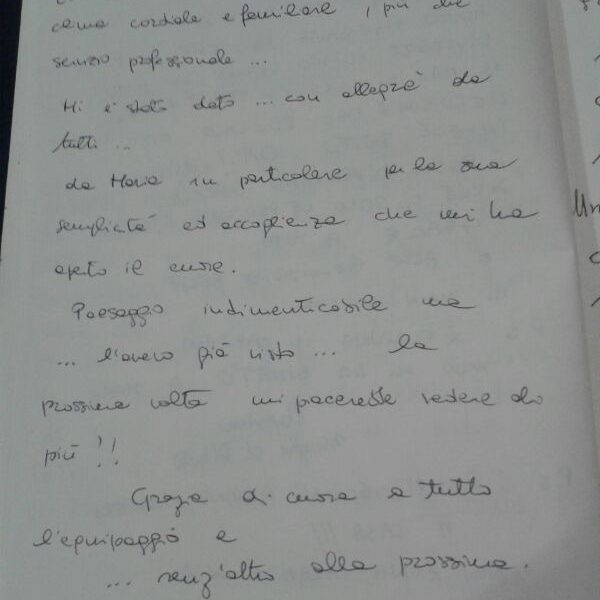 come cordiale e familiare, più che
servizio professionale ...
Mi è stato dato ... con allegria da
tutti ...
da Maria in particolare per la sua
semplicità ed accoglienza che mi ha
aperto il cuore.
Paesaggio indimenticabile ma
... l'avevo già visto ... la
prossima volta mi piacerebbe vedere di
più !!
Grazie di cuore a tutto
l'equipaggio e
... senz'altro alla prossima.